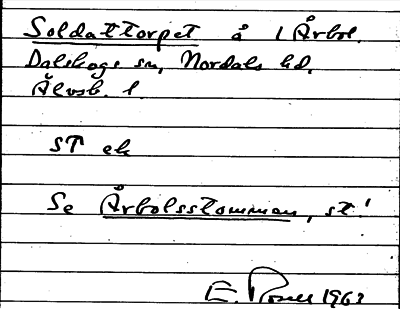 Soldattorpet å 1 Årbol.
Dalskogs sn, Nordals hd,
Älvsb. l
ST ek
Se Årbolsstommen, st!
E. Rosell 1962